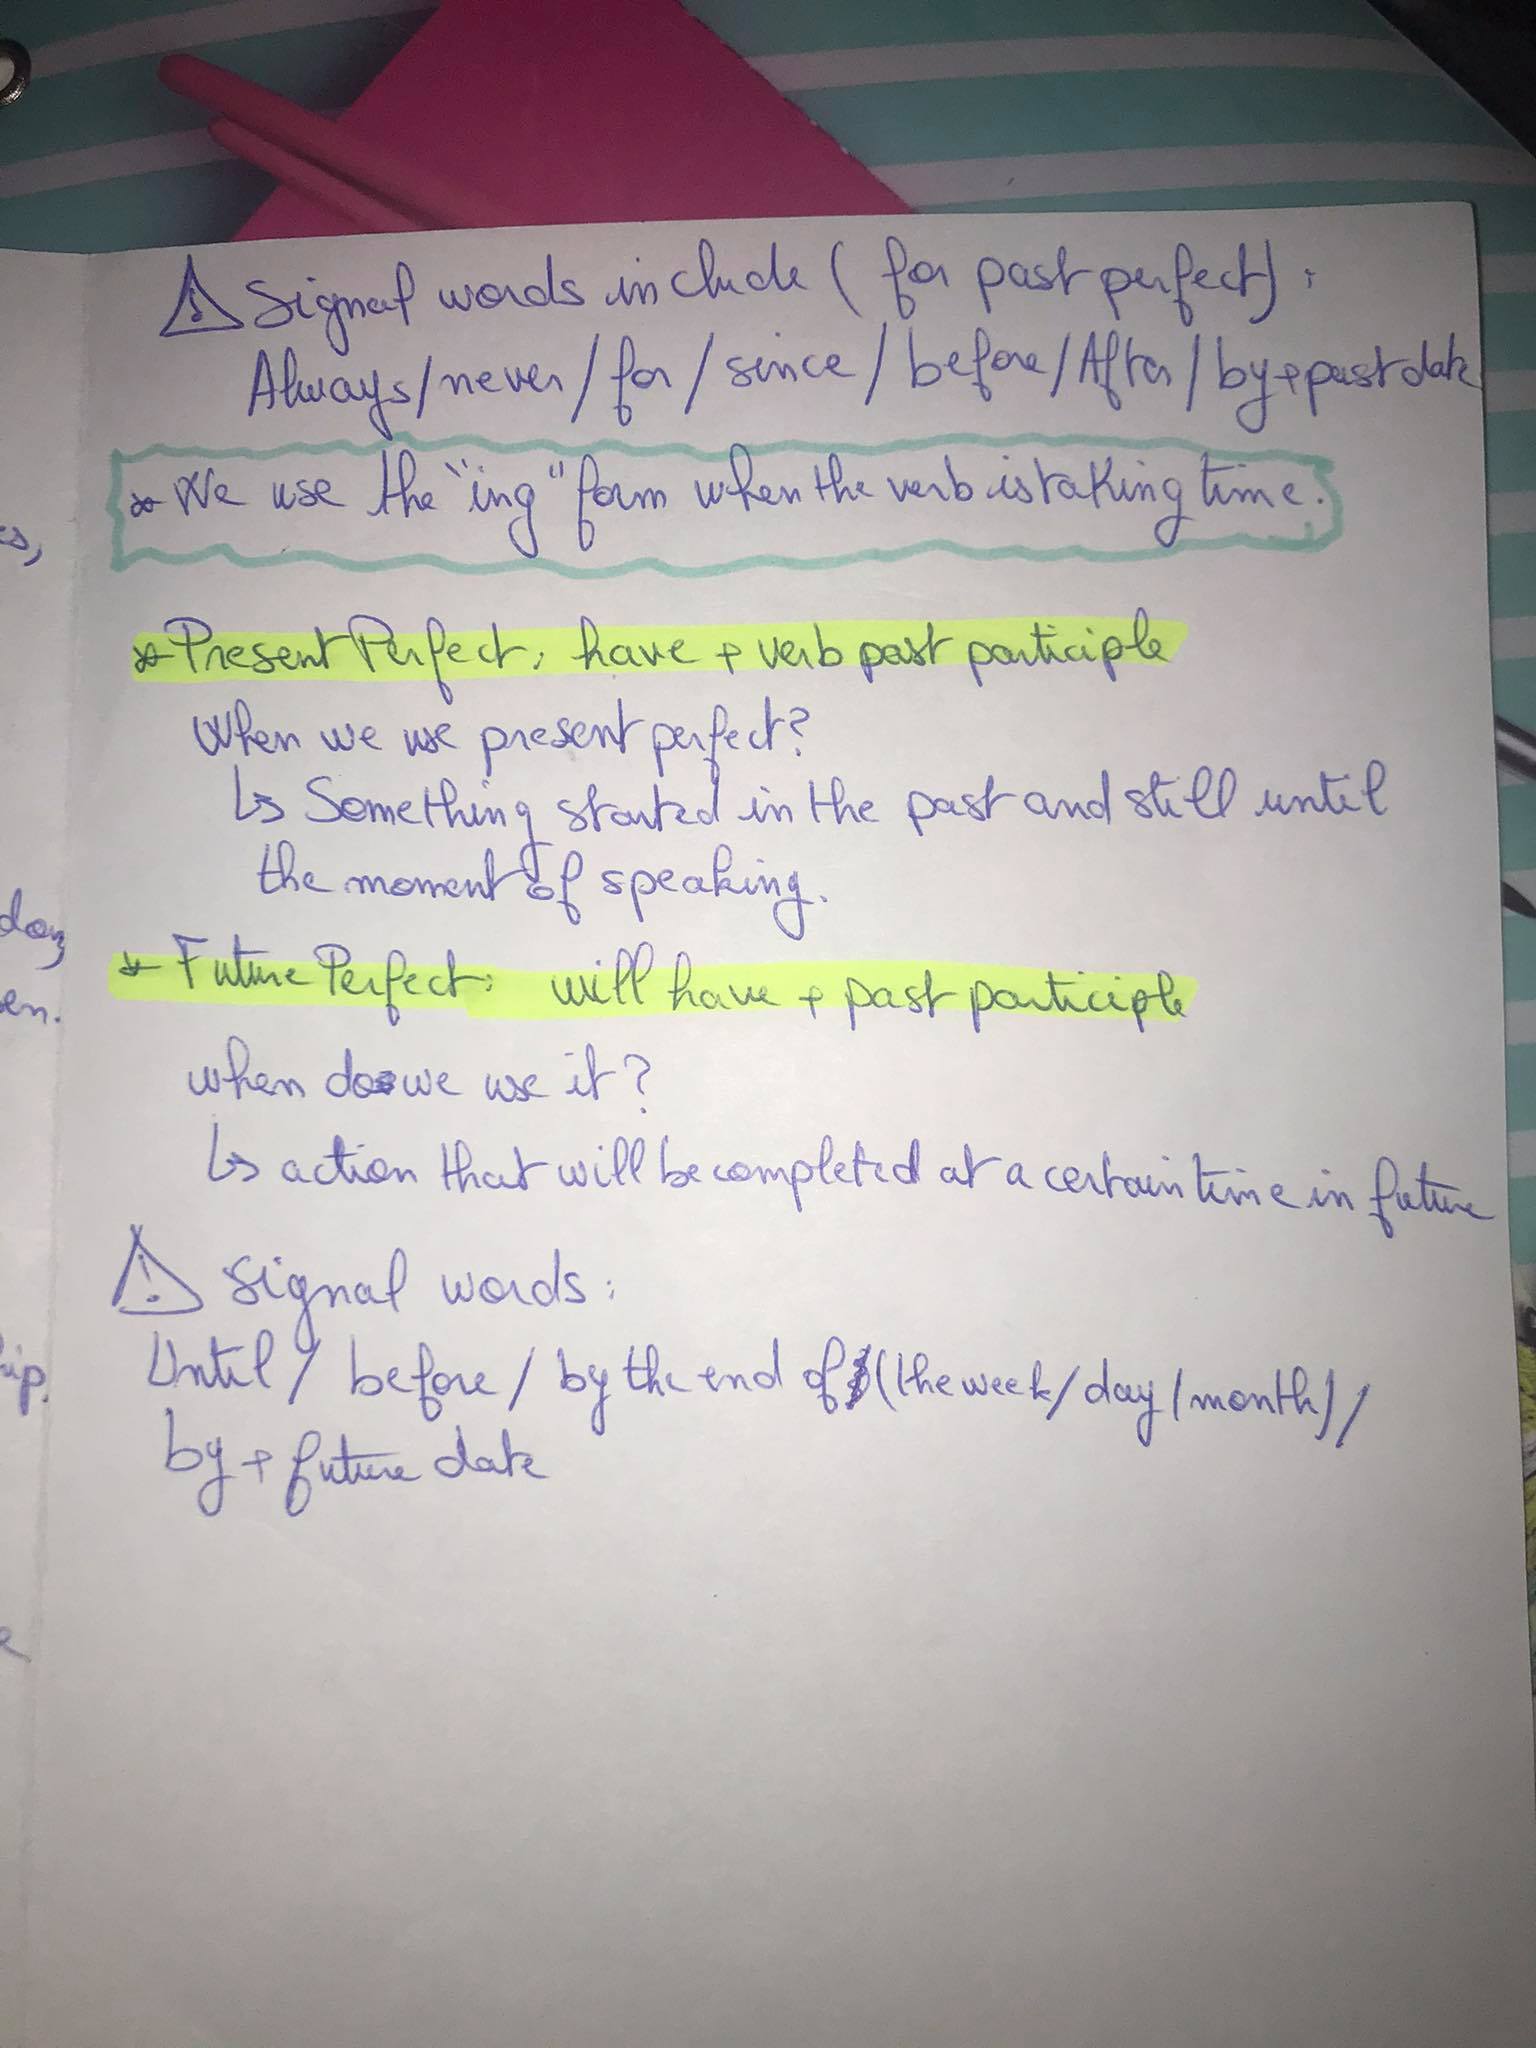 ⚠ Signal words include (for past perfect):
Always/never/for/since/before/After/by+past date
* We use the "ing" form when the verb is taking time.
* Present Perfect: have + verb past participle
When we use present perfect?
↳ Something started in the past and still until
the moment of speaking.
* Future Perfect: will have + past participle
when do we use it?
↳ action that will be completed at a certain time in future
⚠ Signal words:
Until/ before/ by the end of (the week/day/month)/
by + future date